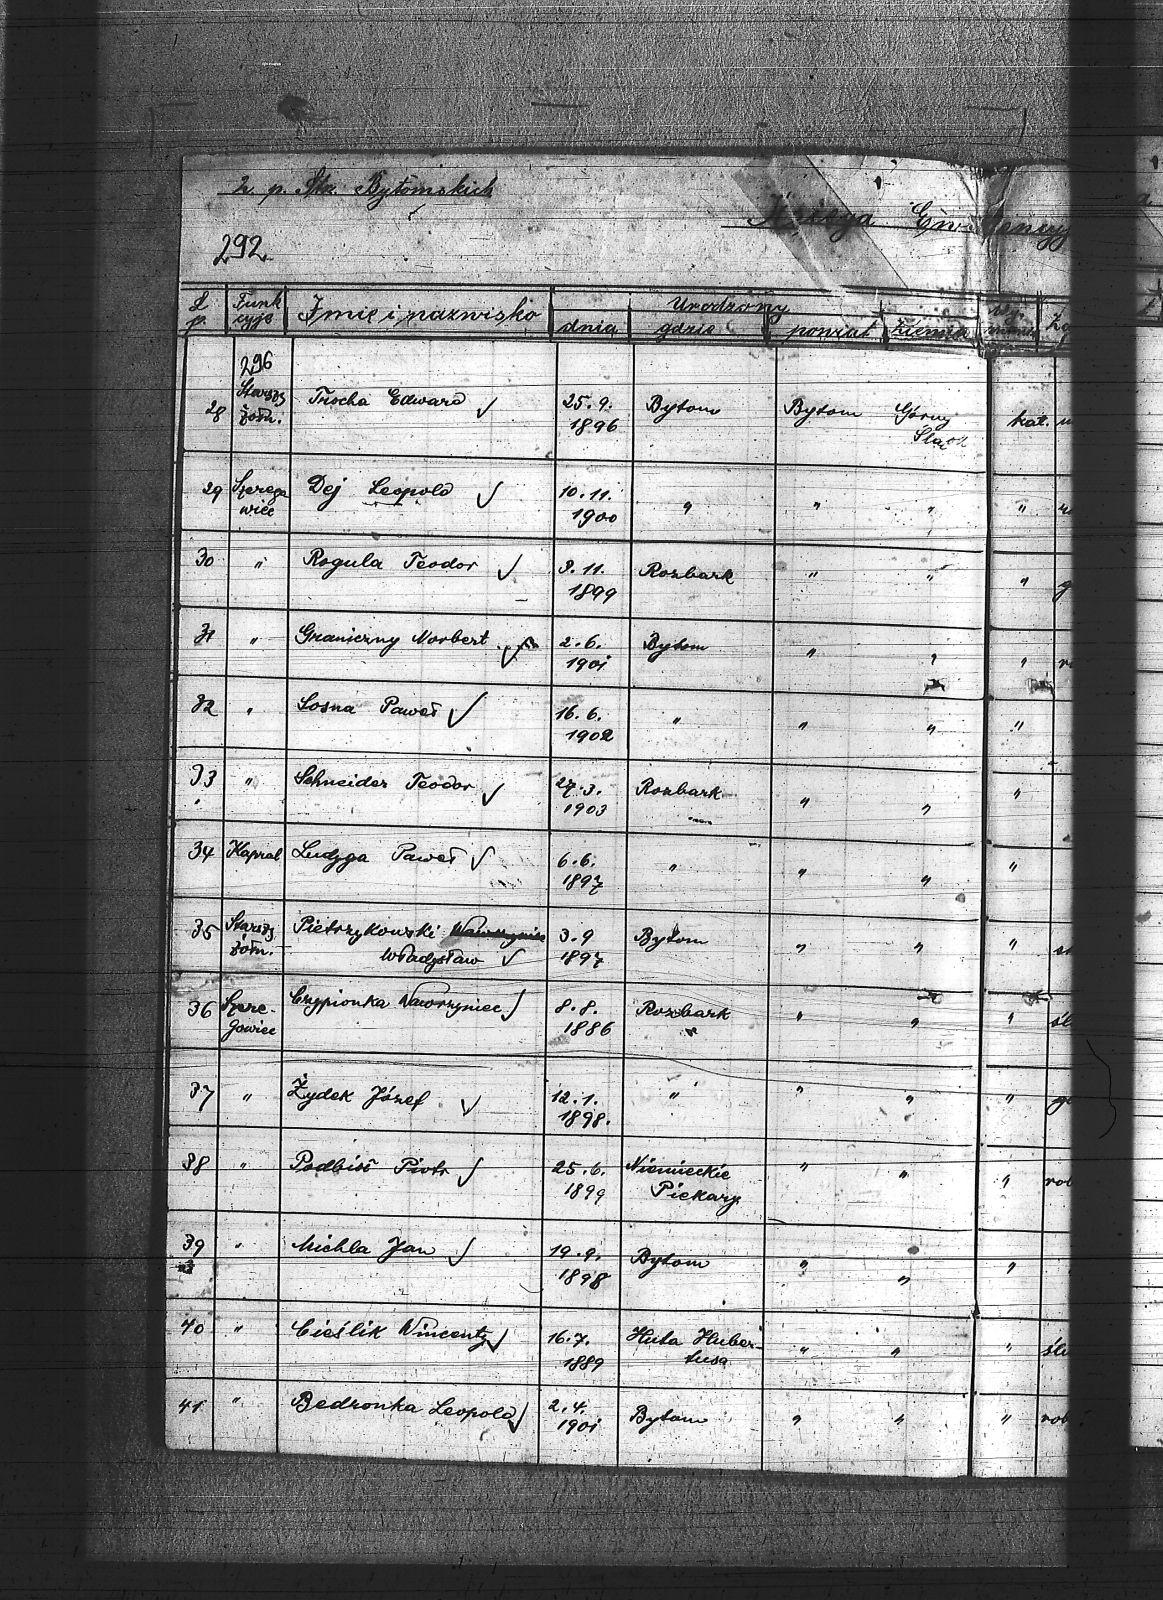 2 p. Strz. Bytomskich
Księga Ewidencyj
292
L. p. Funkcyje Imię i nazwisko Urodzony
dnia gdzie powiat ziemia
296
28 Starszy żołn. Trocha Edward 25.9. 1896 Bytom Bytom Górny Śląsk kat.
29 Szeregowiec Dej Leopold 10.11. 1900 " " " "
30 " Rogula Teodor 3.11. 1899 Rozbark " " "
31 " Graniczny Norbert 2.6. 1901 Bytom " " "
32 " Sosna Paweł 16.6. 1902 " " " "
33 " Schneider Teodor 27.3. 1903 Rozbark " " "
34 Kapral Ludyga Paweł 6.6. 1897 " " " "
35 Starszy żołn. Pietrzykowski Wawrzyniec Władysław 3.9 1897 Bytom " " "
36 Szeregowiec Czypionka Wawrzyniec 8.8. 1886 Rozbark " " "
37 " Żydek Józef 12.1. 1898. " " " "
38 " Podbioł Piotr 25.6. 1899 Niemieckie Piekary " " " rob
39 " Michla Jan 19.9. 1898 Bytom " " "
40 " Cieślik Wincenty 16.7. 1889 Huta Hubertusa " " "
41 " Bedronka Leopold 2.4. 1901 Bytom " " " rob